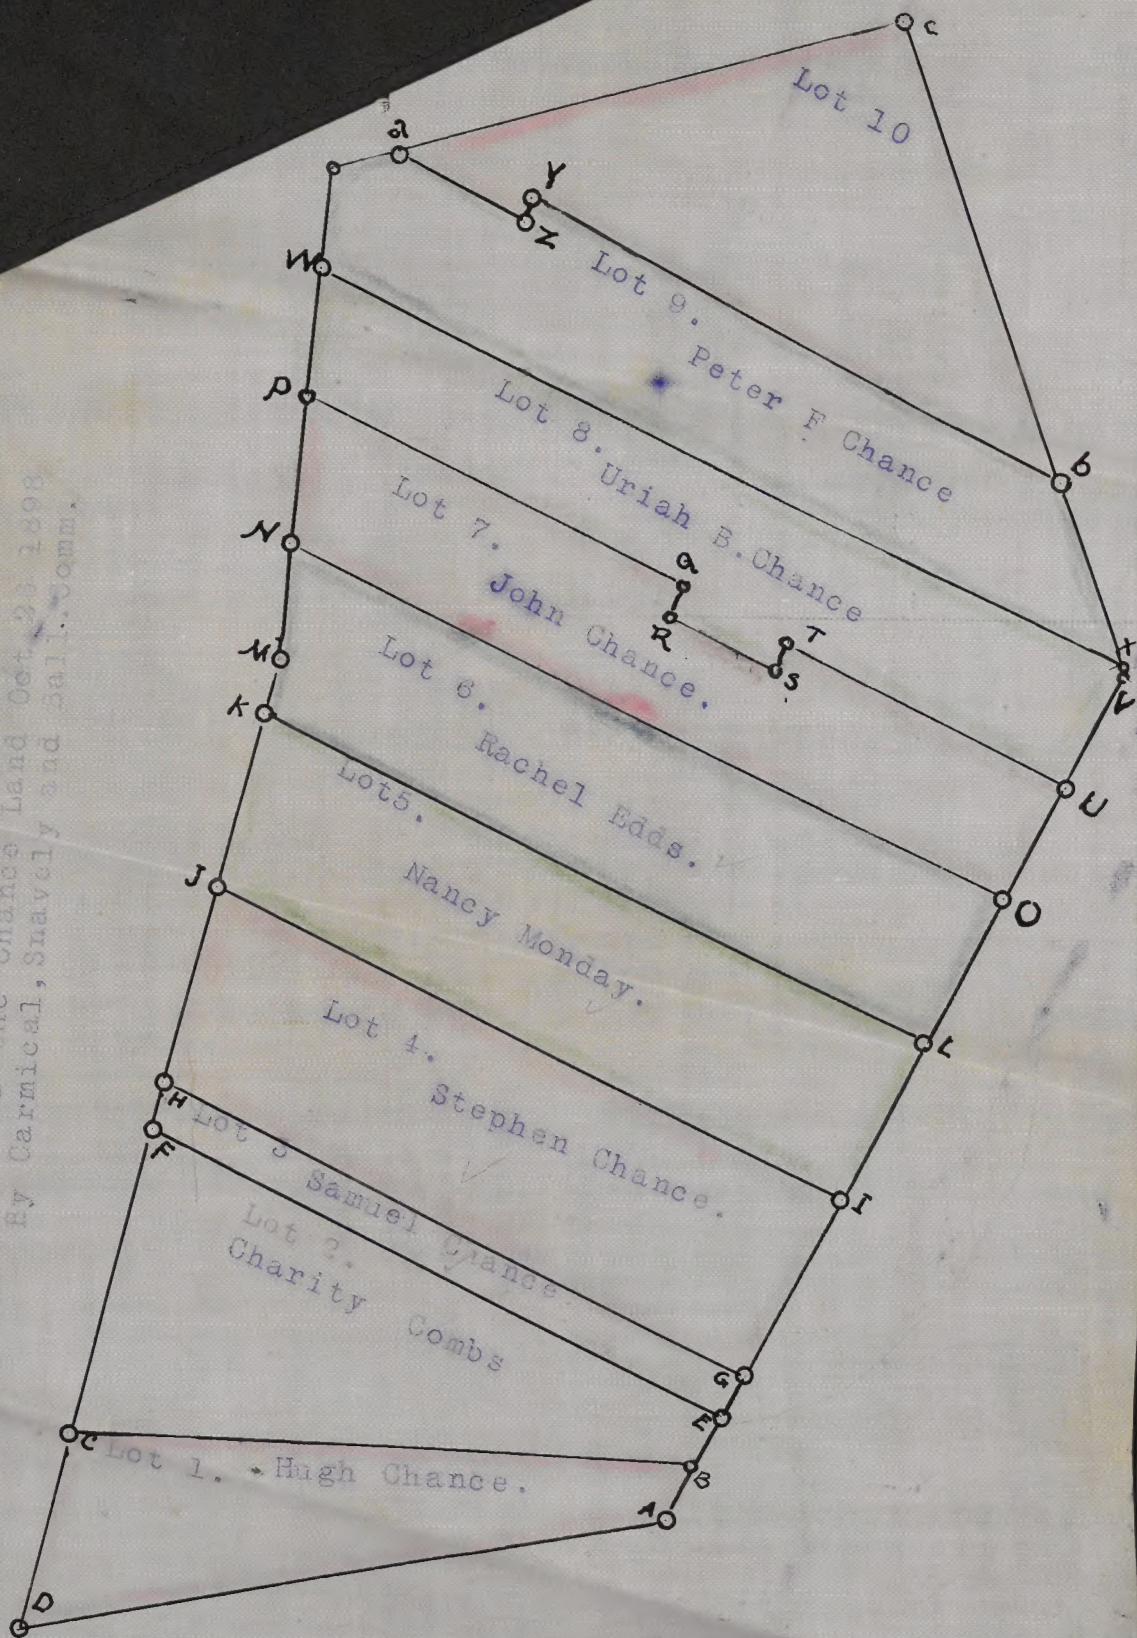 c
Lot 10
a
Y
Z
Lot 9.
Peter F Chance
W
b
P
Lot 8.
Uriah B. Chance
Lot 7.
John Chance.
N
Q
R
T
S
X
V
M
Lot 6.
Rachel Edds.
K
U
Lot5.
Nancy Monday.
J
O
L
Lot 4.
Stephen Chance.
H
F
Lot 3
Samuel Chance.
I
Lot
Charity Combs
G
E
C
B
Lot 1. Hugh Chance.
A
D
Chance Land Oct. 1898
By Carmical, Snavely and Ball. Comm.